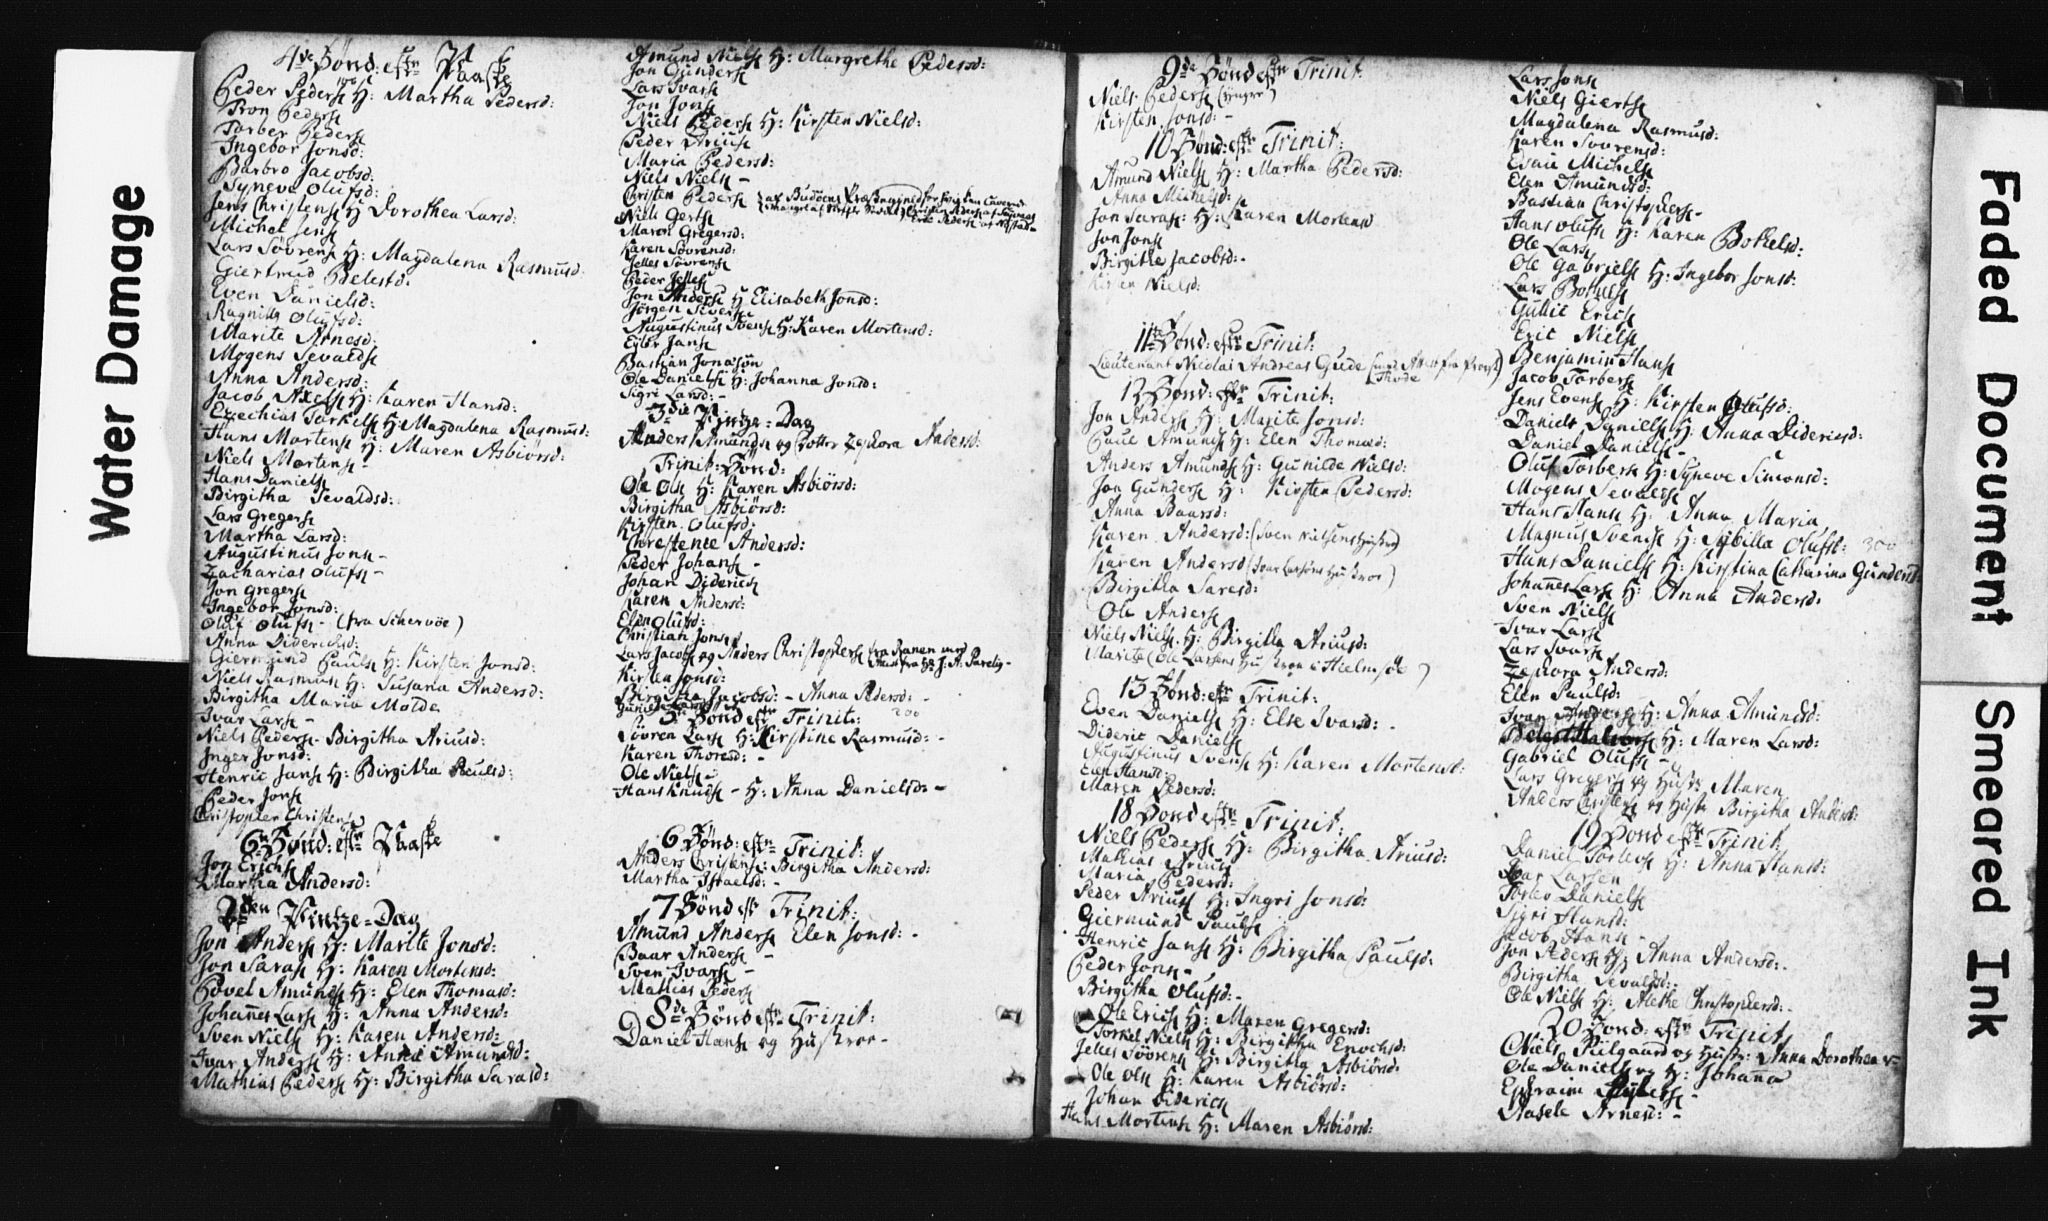 Water Damage
4de Sønd: eftr Paaske
Peder Peders H: Martha Pedersd:
Tron Peders
Torber Peders
Ingebor Jonsd:
Barbro Jacobsd:
Syneve Olufsd:
Jens Christens H Dorothea Larsd:
Michel Jens
Lars Sövrens H: Magdalena Rasmusd:
Giertrud
Even Danielsd:
Ragnilla Olufsd:
Marite Arnesd:
Mogens Sevalds
Anna Andersd:
Jacob Axels H: Karen Hansd:
Ezechias Torkels H: Magdalena Rasmusd:
Hans Mortens H: Maren Asbiörsd:
Niels Mortens -
Hans Daniels
Birgitha Sevaldsd:
Lars Gregers
Martha Larsd:
Augustinus Jons -
Zacharias Olufs -
Jon Gregers
Ingebor Jonsd:
Oluf Olufs - (fra Schervöe)
Anna Diderichsd:
Giermund Pauls H: Kirsten Jonsd:
Niels Rasmus H: Susana Andersd:
Birgitha Maria Molde
Ivar Lars -
Niels Peders - Birgitha Ariusd:
Inger Jonsd:
Henric Jans H: Birgitha Paulsd:
Peder Jons
Christopher Christens
6 Sønd: eftr Paaske
Jon Erichs
Martha Andersd:
2den Pintze-Dag
Jon Anders H: Marite Jonsd:
Jon Saras H: Karen Mortensd:
Povel Amunds H: Elen Thomasd:
Johannes Lars H: Anna Andersd:
Sven Niels H: Karen Andersd:
Ivar Anders H: Anna Amundsd:
Mathias Peders H: Birgitha Sarasd:
Amund Niels H: Margrethe Pedersd:
Jon Gunders
Lars Ivars
Jon Jons
Niels Peders H: Kirsten Nielsd:
Peder Arius
Maria Pedersd:
Niels Niels -
Christen Peders
Niels Gerts
Maren Gregersd:
Karen Sövrensd:
Jelles Sövrens
Peder Jelles
Jon Anders H Elisabeth Jonsd:
Jörgen Sivers
Augustinus Svens H: Karen Mortensd:
Eiler Jans
Bastian Jonasön
Ole Daniels H: Johanna Jonsd:
Sigri Larsd: -
3die Pintze-Dag
Anders Amunds og Dotter Zephora Andersd:
Trinit: Sönd:
Ole Ols H: Karen Asbiörsd:
Birgitha Asbiörsd:
Kirsten Olufsd:
Chrestence Andersd:
Peder Johans -
Johan Diderichs
Karen Andersd:
Elen Olufsd:
Christian Jons
Lars Jacobs og Anders Christophers fra Ranen med
Kirsten Jonsd:
Birgitha Jacobsd: - Anna Pedersd: -
5te Sönd eftr Trinit:
Sövren Lars H: Kirstine Rasmusd: -
Karen Thoresd: -
Ole Niels -
Hans Knuds - H: Anna Danielsd: -
6 Sönd: eftr Trinit:
Anders Christens: Birgitha Andersd:
Martha Israelsd: -
7 Sönd eft Trinit:
Amund Anders Elen Jonsd: -
Baar Anders -
Sven Ivars -
Mathias Peders
8de Sönd eftr Trinit:
Daniel Hans og Hustroe -
9de Sönd eftr Trinit
Niels Peders (yngre)
Kirsten Jonsd: -
10 Sönd: eftr Trinit:
Amund Niels H: Martha Pedersd:
Anna Michelsd:
Jon Saras: H: Karen Mortens
Jon Jons
Birgithe Jacobsd: -
Nielsd:
11te Sönd: eftr Trinit:
Lieutenant Nicolai Andreas Gude (med Attest fra Provst Thode)
12 Sönd: eftr Trinit:
Jon Anders H: Marite Jonsd:
Paul Amunds H: Elen Thomasd:
Anders Amunds H: Gunilde Nielsd:
Jon Gunders H: Kirsten Pedersd:
Anna Baarsd:
Karen Andersd: (Sven Nielsens Hustroe)
Karen Andersd (Ivar Larsens Hustroe)
Birgitha Saresd:
Ole Anders
Niels Niels H: Birgitha Ariusd:
Marite (Ole Larsens Hustroe i Hielmsöe)
13 Sönd: eftr Trinit:
Even Daniels H: Else Ivarsd: -
Dideric Daniels
Augustinus Svens H: Karen Mortensd:
Elen Hansd:
Maren Pedersd:
18 Sönd eftr Trinit:
Niels Peders H: Birgitha Ariusd:
Mathias Arius
Maria Pedersd:
Peder Arius H: Ingri Jonsd:
Giermund Pauls
Henric Jans H: Birgitha Paulsd:
Peder Jons -
Birgitha Olufsd: -
Ole Erichs H: Maren Gregersd:
Torkel Niels H: Birgitha Enochsd:
Jelles Sövrens H: Birgitha Asbiörsd:
Ole Ols H: Karen Asbiörsd:
Johan Diderichs
Hans Mortens H: Maren Asbiörsd:
Lars Jons
Niels Gierts
Magdalena Rasmusd:
Karen Sövrensd:
Esaie Michels
Elen Amundsd:
Bastian Christophers -
Hans Olufs H: Karen Bottelsd:
Ole Lars
Ole Gabriels H: Ingebor Jonsd:
Lars Bottels
Gullic Erichs
Eric Niels
Benjamin Hans
Jacob Torbers
Jens Evens H: Kirsten Olufsd:
Daniel Daniels H: Anna Diderichsd:
Daniel Daniels -
Oluf Torbers H: Syneve Simonsd:
Mogens Sevalds
Hans Hans H: Anna Maria
Magnus Svends H: Sybilla Olufsd:
Hans Daniels H: Kirstina Catharina Gundersd:
Johannes Lars H: Anna Andersd:
Sven Niels
Ivar Lars
Lars Ivars
Zephora Andersd:
Elen Paulsd:
Ivar Anders H: Anna Amundsd:
H: Maren Larsd:
Gabriel Olufs -
Lars Gregers og Hustr Maren
Anders Christens og Hustr Birgitha Andersd:
19 Sönd eftr Trinit
Daniel Torlevs H: Anna Hansd:
Ivar Larsen
Torlev Daniels
Sigri Hansd:
Jacob Hans -
Jon Peders H: Anna Andersd: -
Birgitha Sevaldsd: -
Ole Niels H: Alethe Christophersd: -
20 Sönd: eftr Trinit
Niels Riilgaard og Hustr: Anna Dorothea
Ole Daniels og H: Johanna
Ephraim
Aasele Arnesd: -
Faded Document
Smeared Ink